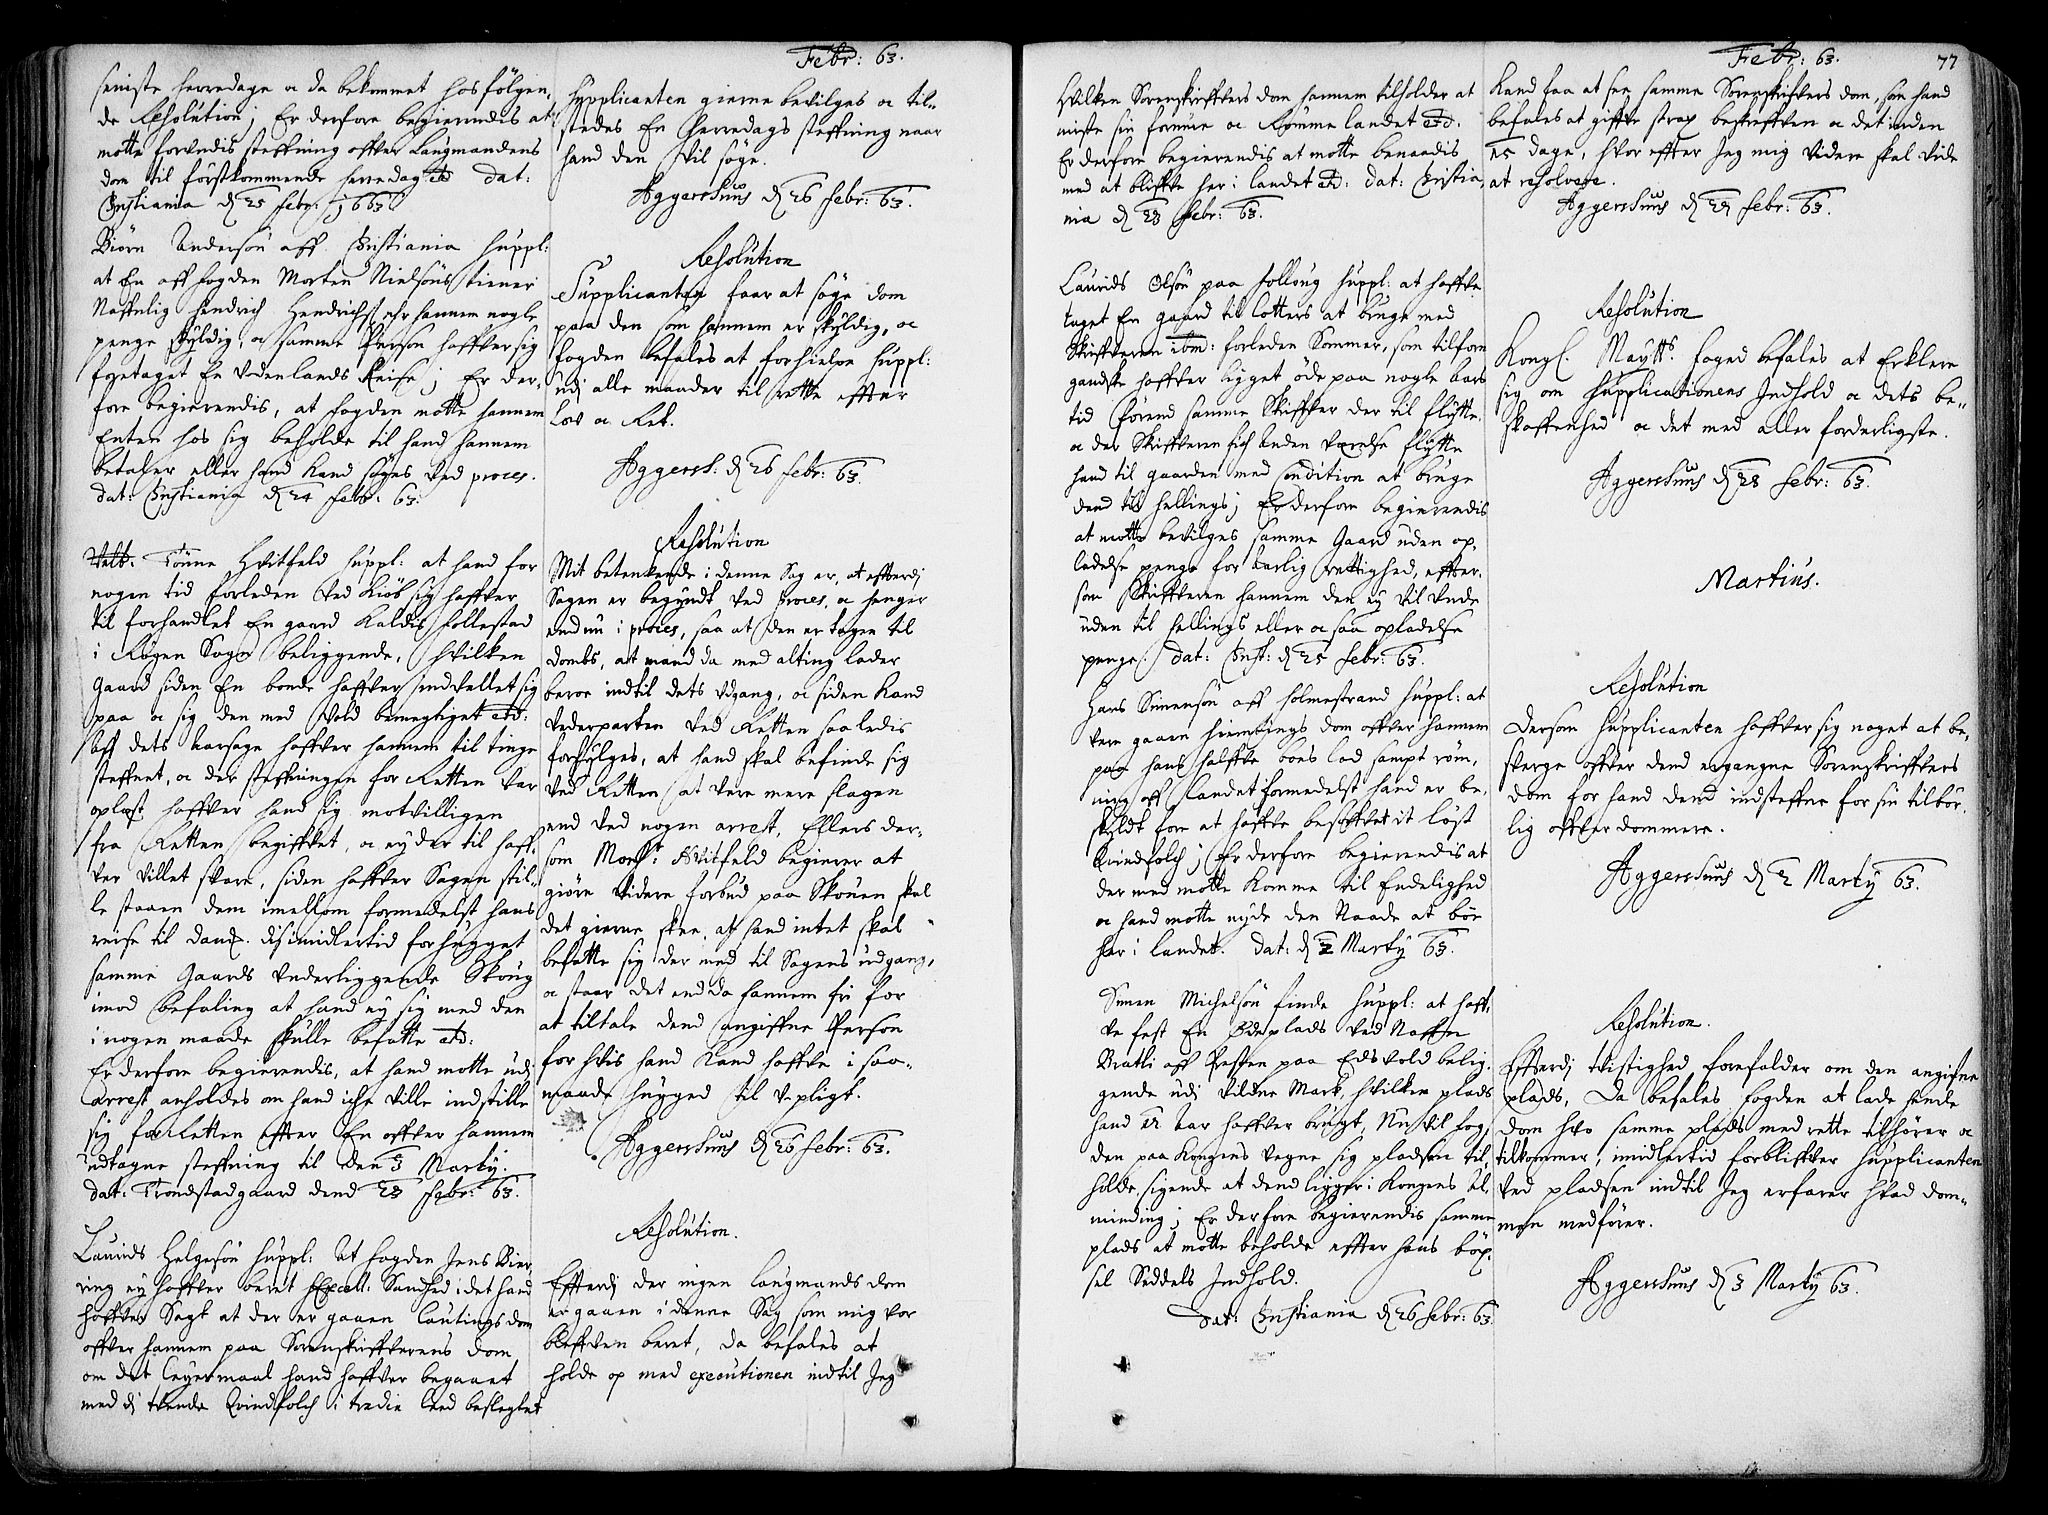 Febr: 63.
seniste herredage a da bekommet hosfölgen,
de Resolution; Er derfore begierendis at
motte forundis steffning offuer Laugmandens
dom til förstkommende herredag etc dat:
Christiania d 25 febr: 1663.
Biörn Andersön aff Christiania suppl:
at En aff fogden Morten Nielsöns tiener
Naffnlig Hendrich Hendrichs: ehr hannem nogle
penge skyldig, a samme Person haffuer sig
foretaget En Udenlands Reise; Er der,
fore begierendis, at fogden motte hannem
Enten hos sig beholde til hand hannem
betaler eller hand kand söges ved proces.
dat: Christiania d 24 febr: 63.
Velb. Tönne Hvitfeld suppl: at hand for
nogen tid forleden ved kiöb sig haffver
til forhandlet En gaard kaldis follestad
i Rögen Sogn beliggende, hvilken
Gaard siden En bonde haffver indvellet sig
paa a sig den med vold bemegtiget etc:
Aff dets aarsage haffver hannem til tinge
steffnet, a der steffningen for Retten var
oplæst haffver hand sig motvilligen
fra Retten begiffuet, a ey der til haff,
ver villet svare, siden haffver Sagen stil,
le staaen dem imellom formedelst hans
reise til danm. Aff imidlertid forhugget
samme Gaards underliggende Skoug
imod befaling at hand ey sig med den
i nogen maade skulle befatte etc:
Er derfore begierendis, at hand motte udj
arrest anholdes om hand iche ville indstille
sig for Retten efter En offuer hannem
udtagne steffning til den 3 Marty.
dat: Trondstadgaard dend 23 febr: 63.
Laurids Helgesön suppl: At fogden Jens Bier,
ring ey haffver beret Excell: Sandhed i det hand
haffver Sagt at der er gaaen Lautings dom
offver hannem paa Sorenskriffverens dom
om det leyermaal hand haffver begaaet
med dj tvende Qvindfolch i tredie leed beslegtet
Supplicanten gierne bevilges a til,
stedes En Herredags steffning naar
hand den vil söge.
Aggershuus d 26 febr: 63.
Resolution
Supplicanten faar at söge dom
paa den som hannem er skyldig, a
fogden befales at forhielpe suppl:
udj alle maader til rette efter
Lov a Ret.
Aggersh: d 26 febr: 63.
Resolution
Mit betenkende i denne Sag er, at efterdj
Sagen er begyndt ved Proces, a henger
endnu i proces, saa at den er tagen til
dombs, at mand da med alting lader
beroe indtil dets udgang, a siden kand
vederparten ved Retten saaledis
forfulges, at hand skal befinde sig
ved Retten at vere mere slagen
end ved nogen arrest, Ellers der,
som Monsr: Hvitfeld begierer at
giöre videre forbud paa Skouen skal
det gierne skee, at hand intet skal
befatte sig der med til Sagens udgang,
a staar det end da hannem fri for
at tiltale dend angiffne Person
for hvis hand kand haffve i saa,
maade hugged til Upligt.
Aggershuus d 26 febr: 63.
Resolution.
Efterdj der ingen laugmands dom
er gaaen i denne Sag som mig for
bleffven beret, da befales at
holde op med executionen indtil Jeg
Febr: 63. 77
Hvilken Sorenskriffvers dom hannem tilholder at
miste sin formue a Römme landet etc.
Er derfore begierendis at motte benaadis
med at bliffve her i landet etc: dat: Christia,
nia d 23 febr: 63.
Laurids Olsön paa follong suppl: at haffve
taget En gaard til lotters at bruge med
Skriffveren ibm: forleden Sommer, som tilforn
gandske haffver ligget öde paa nogle aars
tid förend samme Skriffver der til flytte.
a der Skriffveren fich anden verelse flytte
hand til gaarden med Condition at bruge
dend til hellings; Er derfore begierendis
at motte bevilges samme Gaard uden op,
ladelse penge for aarlig rettighed, efter,
som Skriffveren hannem den ey vil unde
uden til hellings eller a saa opladelse
penge. dat: Christ: d 25 febr: 63.
Hans Simensön aff Holmestrand suppl: at
vere gaaen hiemtings dom offver hannem
paa hans halffve boes lod sampt röm,
ning aff landet formedelst hand er be,
skyldt fore at haffve besoffvet it löst
Qvindfolch; Er derfore begierendis at
der med motte komme til Endelighed
a hand motte nyde den Naade at boe
her i landet. dat: d 2 Marty 63.
Simen Michelsön finde suppl: at haff,
ve fest En Ödeplads ved Naffn
Bratli aff Presten paa Edsvold belig,
gende udj vildne Mark, hvilken plads
hand 12 Aar haffver brugt, Nu vil fog,
den paa Kongens vegne sig pladsen til,
holde, sigende at dend ligger i Kongens Al,
minding; Er derfore begierendis samme
plads at motte beholde efter hans böx,
sel Seddels Indhold.
Dat: Christiania d 26 febr: 63.
kand faa at see samme Sorenskriffvers dom, som hand
befales at giffve strax beskreffven a det inden
15 dage, hvor efter Jeg mig videre skal vide
at resolvere.
Aggershuus d 27 febr: 63.
Resolution
Kongl. Maytts. foged befales at Erklere
sig om supplicationens Indhold a dets be,
skaffenhed a det med aller forderligste.
Aggershuus d 28 febr: 63.
Martius.
Resolution
Dersom supplicanten haffver sig noget at be,
sverge offver dend ergangne Sorenskriffvers
dom for hand dend indsteffne for sin tilbör,
lig offverdommere.
Aggershuus d 2 Marty 63.
Resolution.
Efterdj tvistighed forefalder om den angifne
plads, Da befales fogden at lade kiende
dom hvo samme plads med rette tilhörer a
tilkommer, imidlertid forbliffver supplicanten
ved pladsen indtil Jeg erfarer hvad dom,
men medförer.
Aggershuus d 3 Marty 63.